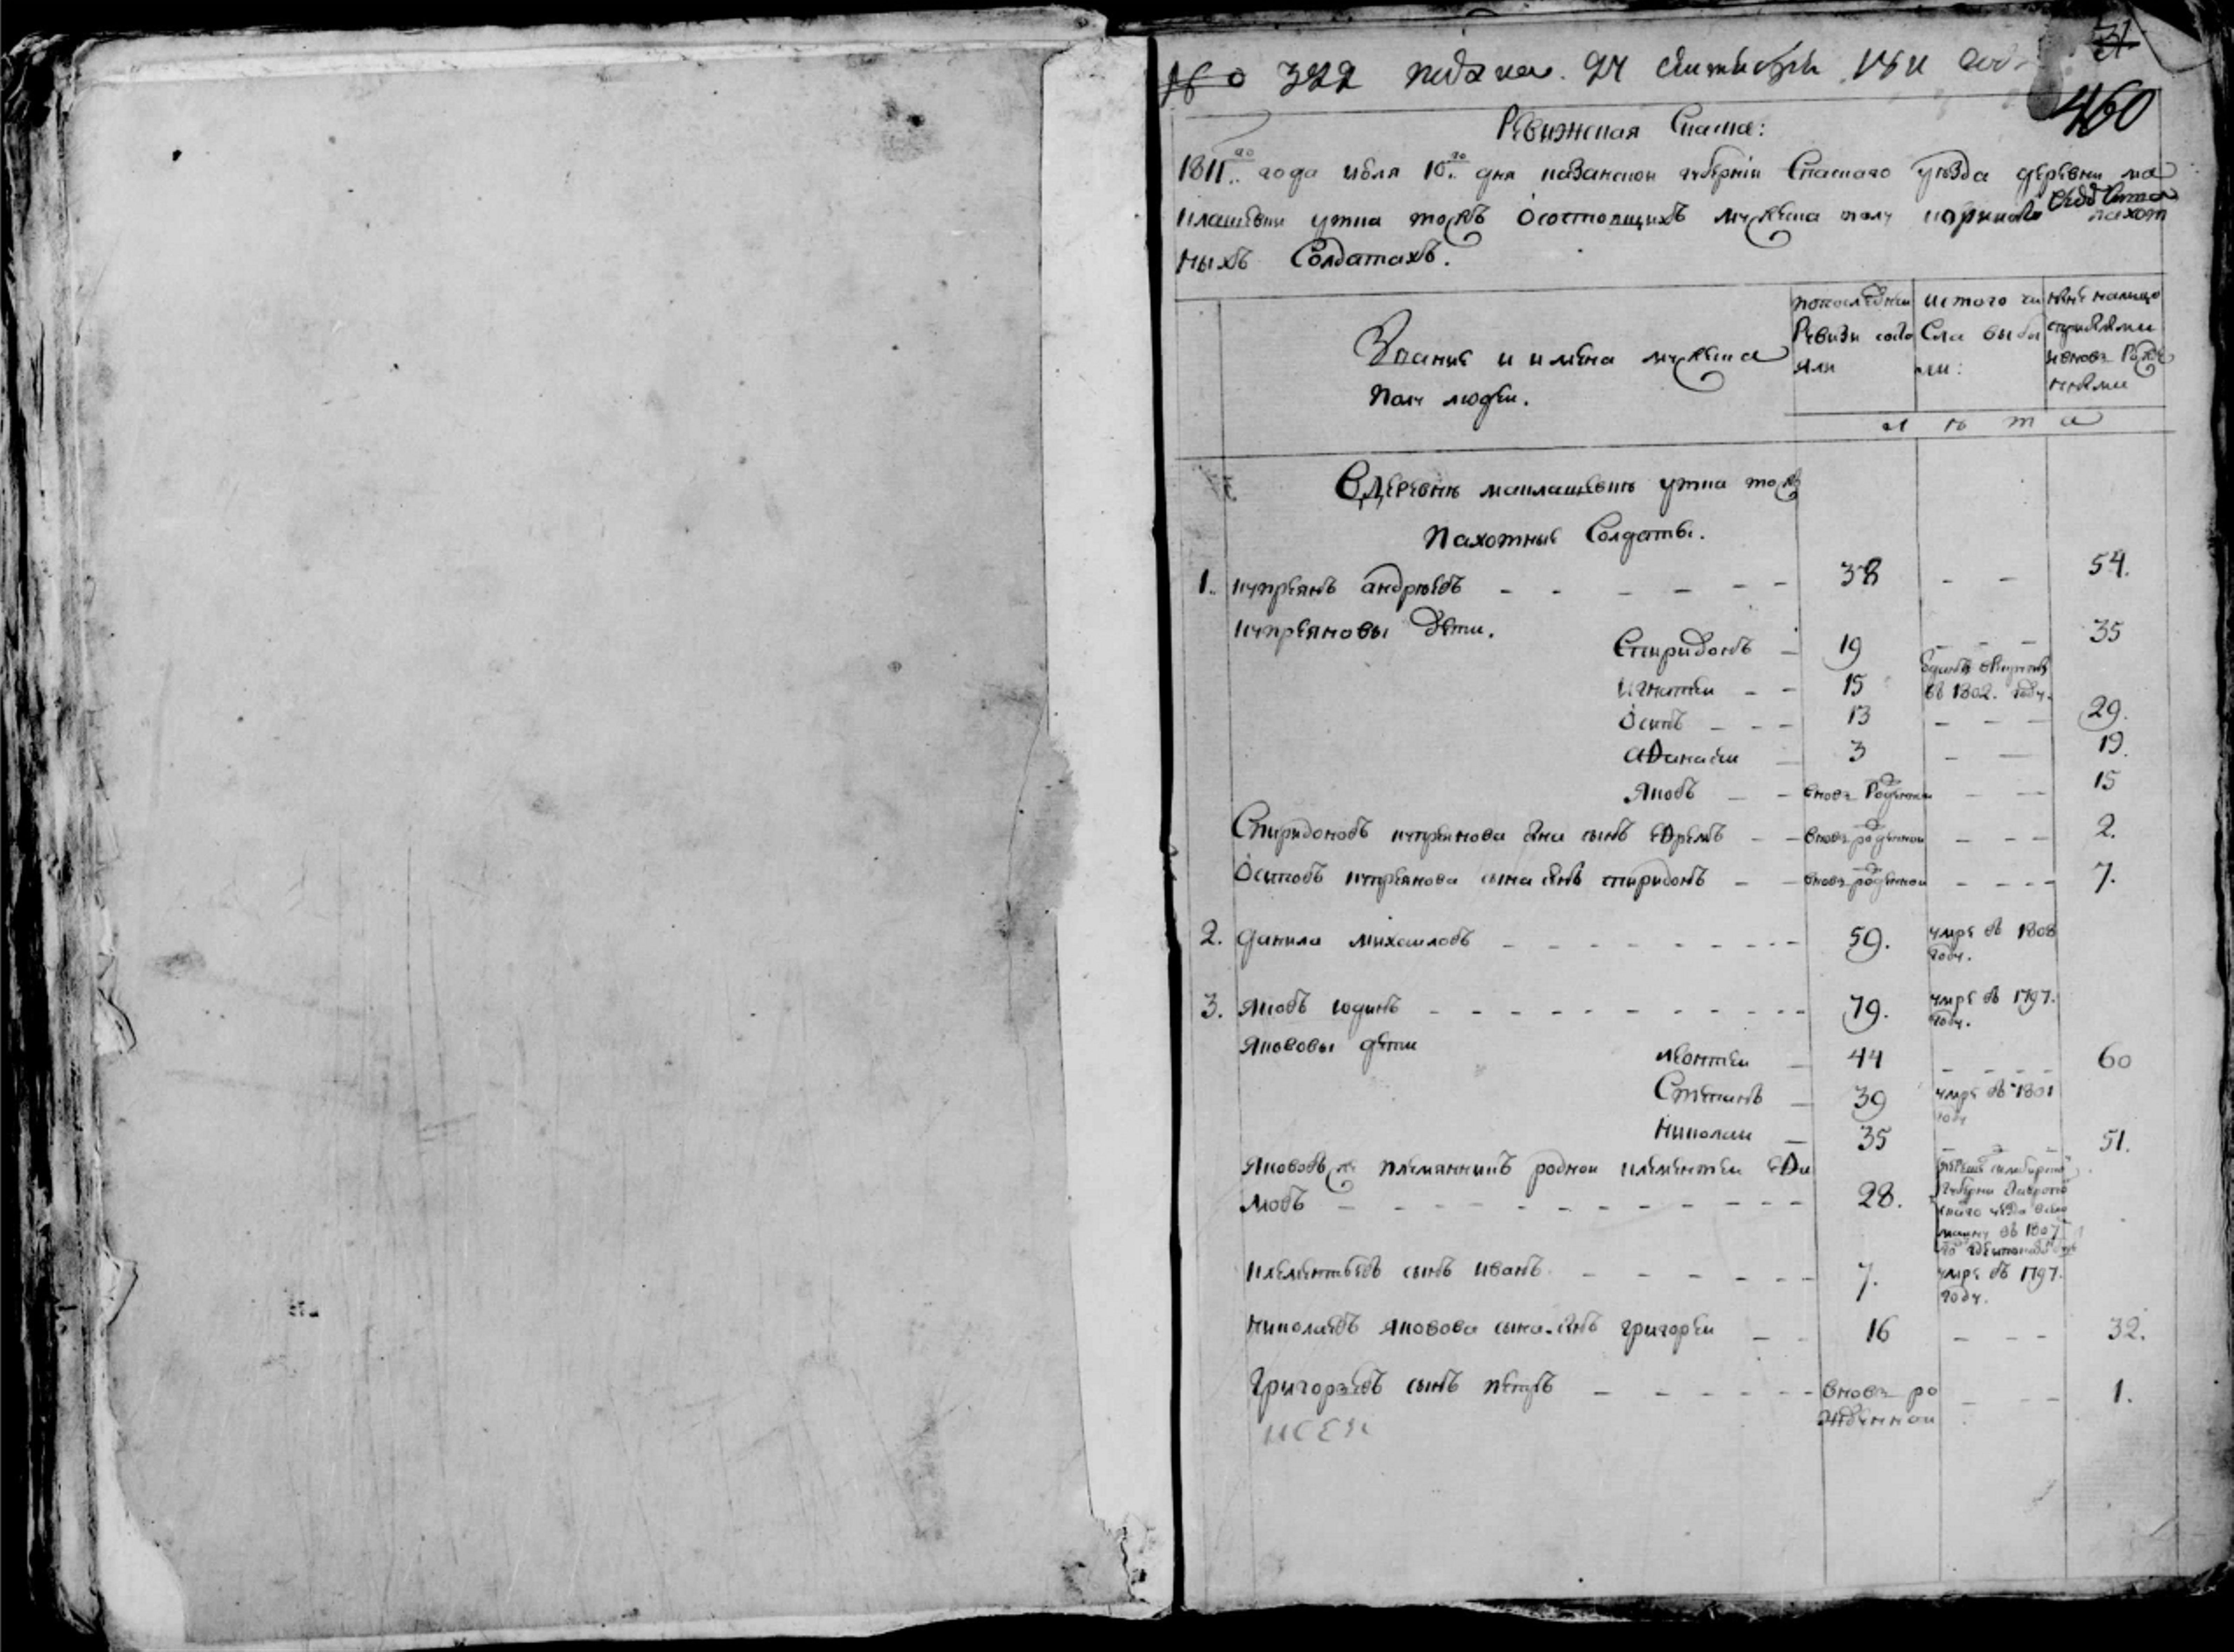 31
№ 322 подана 27 сентября 1811 года
460
Ревижская Скаска:
1811го года июля 10го дня казанской губернiи Спаскаго уезда деревни ма
клашевки утка тожъ о состоящихъ мужеска полу пахот
ныхъ Солдатахъ.
Звание и имена мужеска
полу людей.
попоследней
Ревизи состо
яли
ис того чи
сла выбы
ли:
ныне налицо
лета
В деревне маклашевке утка тожъ
Пахотные Солдаты.
1. куприянъ андреевъ 38 54.
куприяновы дети.
Спиридонъ 19 35
Игнатей 15 въ 1802. году.
Осипъ 13 29.
афанасей 3 19.
яковъ вновь рожденной 15
Спиридоновъ куприянова сна сынъ ефремъ вновь рожденной 2.
Осиповъ куприянова сына снъ спиридонъ вновь рожденной 7.
2. данила михаиловъ 59. умре въ 1808
году.
3. яковъ юдинъ 79. умре въ 1797.
году.
якововы дети
леонтей 44 60
Степанъ 39 умре въ 1801
году
николаи 35 51.
яковов же племянникъ родной клементей ефи
мовъ 28.
губернии
въ 1807
клементьевъ сынъ иванъ 7. умре въ 1797.
году.
николаевъ яковова сына снъ григорей 16 32.
григорьевъ сынъ петръ вновь ро 1.
жденной